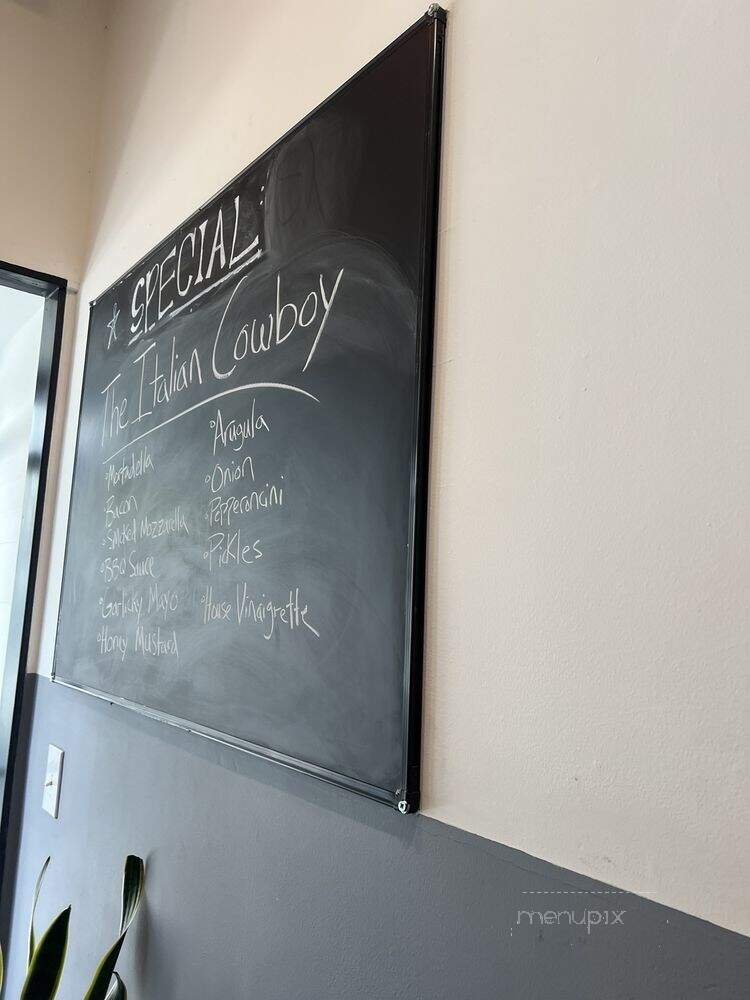 * SPECIAL:
The Italian Cowboy
°Mortadella
°Bacon
°Smoked Mozzarella
°BBQ Sauce
°Garlicky Mayo
°Honey Mustard
°Arugula
°Onion
°Pepperoncini
°Pickles
°House Vinaigrette
menupix